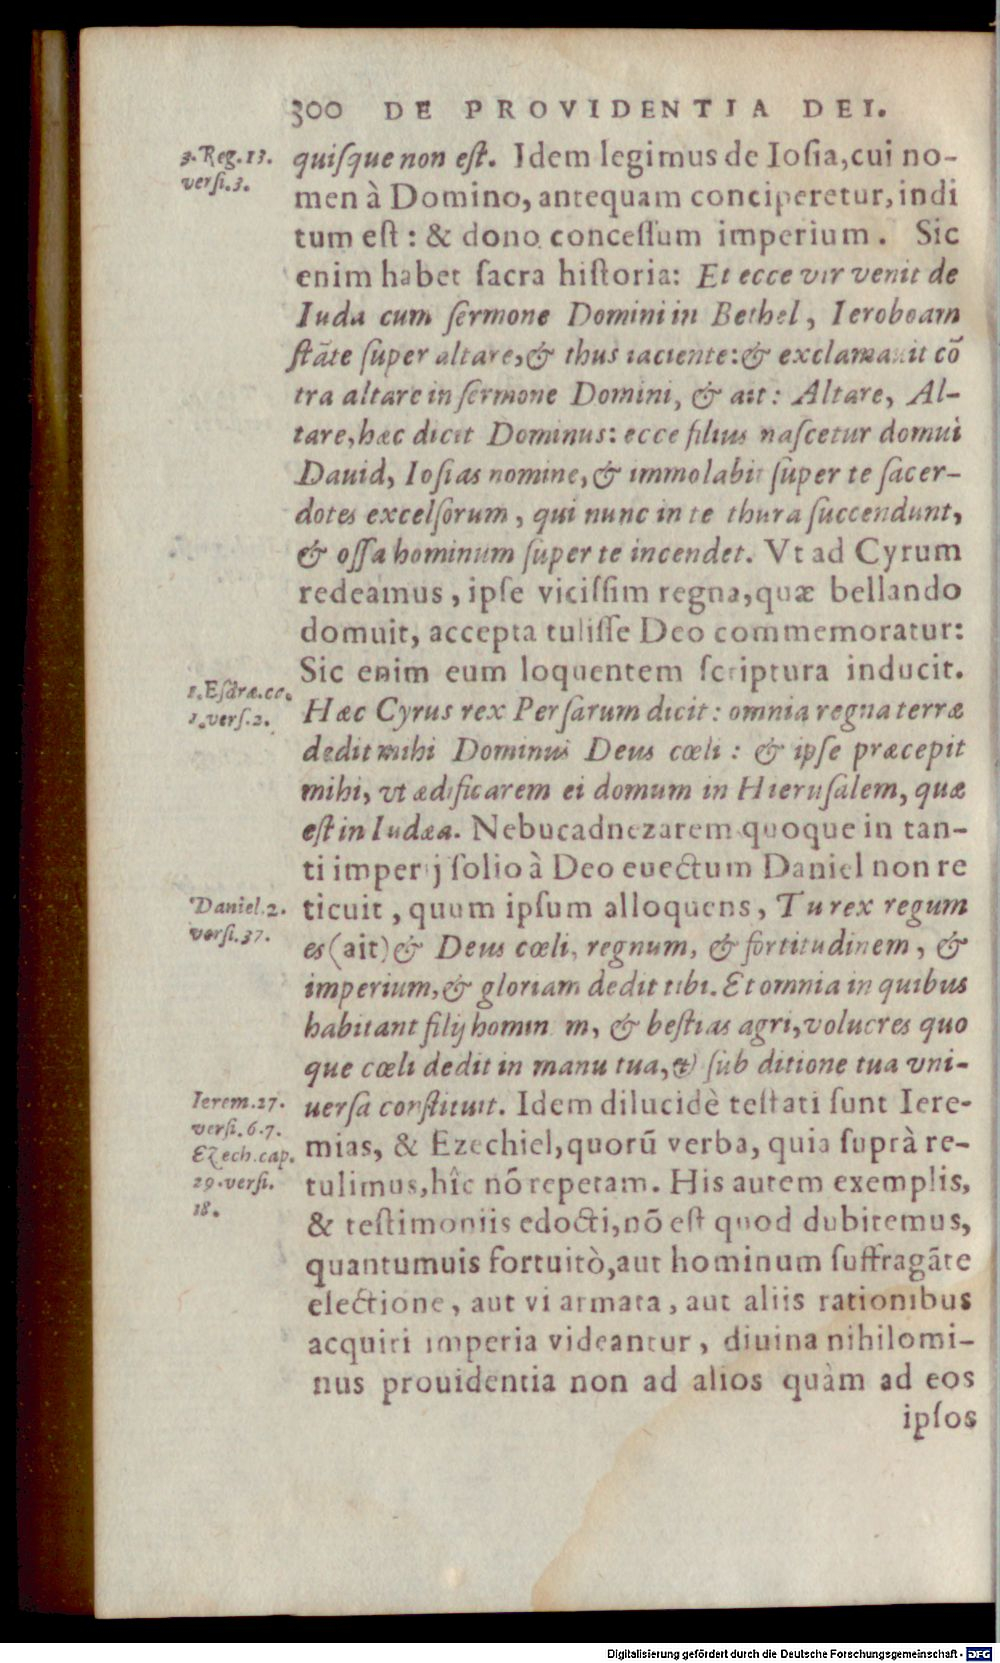 300 DE PROVIDENTIA DEI.
3. Reg. 13.
versi. 3.
quiſque non eſt. Idem legimus de Ioſia, cui no-
men à Domino, antequam conciperetur, indi
tum eſt : & dono conceſſum imperium. Sic
enim habet ſacra hiſtoria: Et ecce vir venit de
Iuda cum ſermone Domini in Bethel, Ieroboam
ſtāte ſuper altare, & thus iaciente: & exclamauit cō
tra altare in ſermone Domini, & ait: Altare, Al-
tare, hæc dicit Dominus: ecce filius naſcetur domui
Dauid, Ioſias nomine, & immolabit ſuper te ſacer-
dotes excelſorum, qui nunc in te thura ſuccendunt,
& oſſa hominum ſuper te incendet. Vt ad Cyrum
redeamus, ipſe viciſſim regna, quæ bellando
domuit, accepta tuliſſe Deo commemoratur:
Sic enim eum loquentem ſcriptura inducit.
1. Eſdræ. cc.
1. verſ. 2.
Hæc Cyrus rex Perſarum dicit: omnia regna terræ
dedit mihi Dominus Deus cœli: & ipſe præcepit
mihi, vt ædificarem ei domum in Hieruſalem, quæ
eſt in Iudæa. Nebucadnezarem quoque in tan-
ti imperij ſolio à Deo euectum Daniel non re
Daniel. 2.
verſi. 37.
ticuit, quum ipſum alloquens, Tu rex regum
es (ait) & Deus cœli, regnum, & fortitudinem, &
imperium, & gloriam dedit tibi. Et omnia in quibus
habitant filij homin m, & beſtias agri, volucres quo
que cœli dedit in manu tua, & ſub ditione tua vni-
Ierem. 27.
verſi. 6. 7.
Ezech. cap.
29. verſi.
18.
uerſa conſtituit. Idem dilucidè teſtati ſunt Iere-
mias, & Ezechiel, quorū verba, quia ſuprà re-
tulimus, hîc nō repetam. His autem exemplis,
& teſtimoniis edocti, nō eſt quod dubitemus,
quantumuis fortuitò, aut hominum ſuffragāte
electione, aut vi armata, aut aliis rationibus
acquiri imperia videantur, diuina nihilomi-
nus prouidentia non ad alios quàm ad eos
ipſos
Digitalisierung gefördert durch die Deutsche Forschungsgemeinschaft - DFG